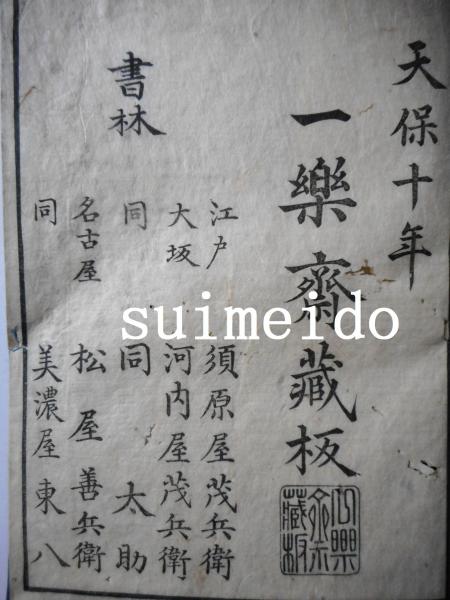 天保十年
一樂齋藏板
書林
江戸 須原屋茂兵衛
大坂 河内屋茂兵衛
同 同 太助
名古屋 松屋善兵衛
同 美濃屋東八
suimeido